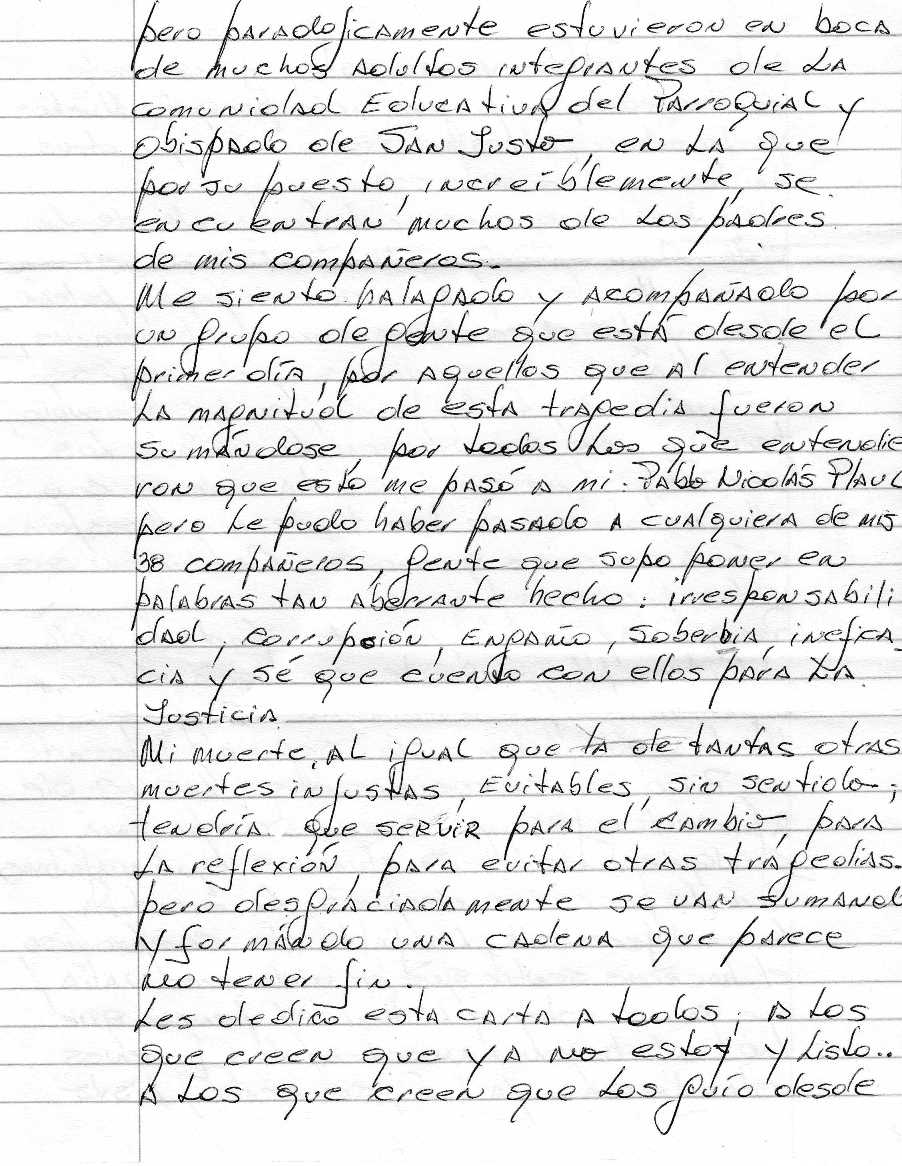 pero paradojicamente estuvieron en boca
de muchos adultos integrantes de la
comunidad Educativa del Parroquial y
Obispado de San Justo, en la que
por su puesto, increíblemente, se
encuentran muchos de los padres
de mis compañeros.
Me siento halagado y acompañado por
un grupo de gente que está desde el
primer día, por aquellos que al entender
la magnitud de esta tragedia fueron
sumándose, por todos los que entendie
ron que esto me pasó a mi. Pablo Nicolás
pero le pudo haber pasado a cualquiera de mis
38 compañeros, gente que supo poner en
palabras tan aberrante hecho: irresponsabili
dad, corrupción, Engaño, soberbia, inefica_
cia y sé que cuento con ellos para la
Justicia.
Mi muerte, al igual que la de tantas otras
muertes injustas, Evitables, sin sentido;
tendría que servir para el cambio, para
la reflexión, para evitar otras tragedias.
pero desgraciadamente se van sumand
y formándo una cadena que parece
no tener fin.
Les dedico esta carta a todos; a los
que creen que ya no estoy y listo..
A los que creen que los guío desde